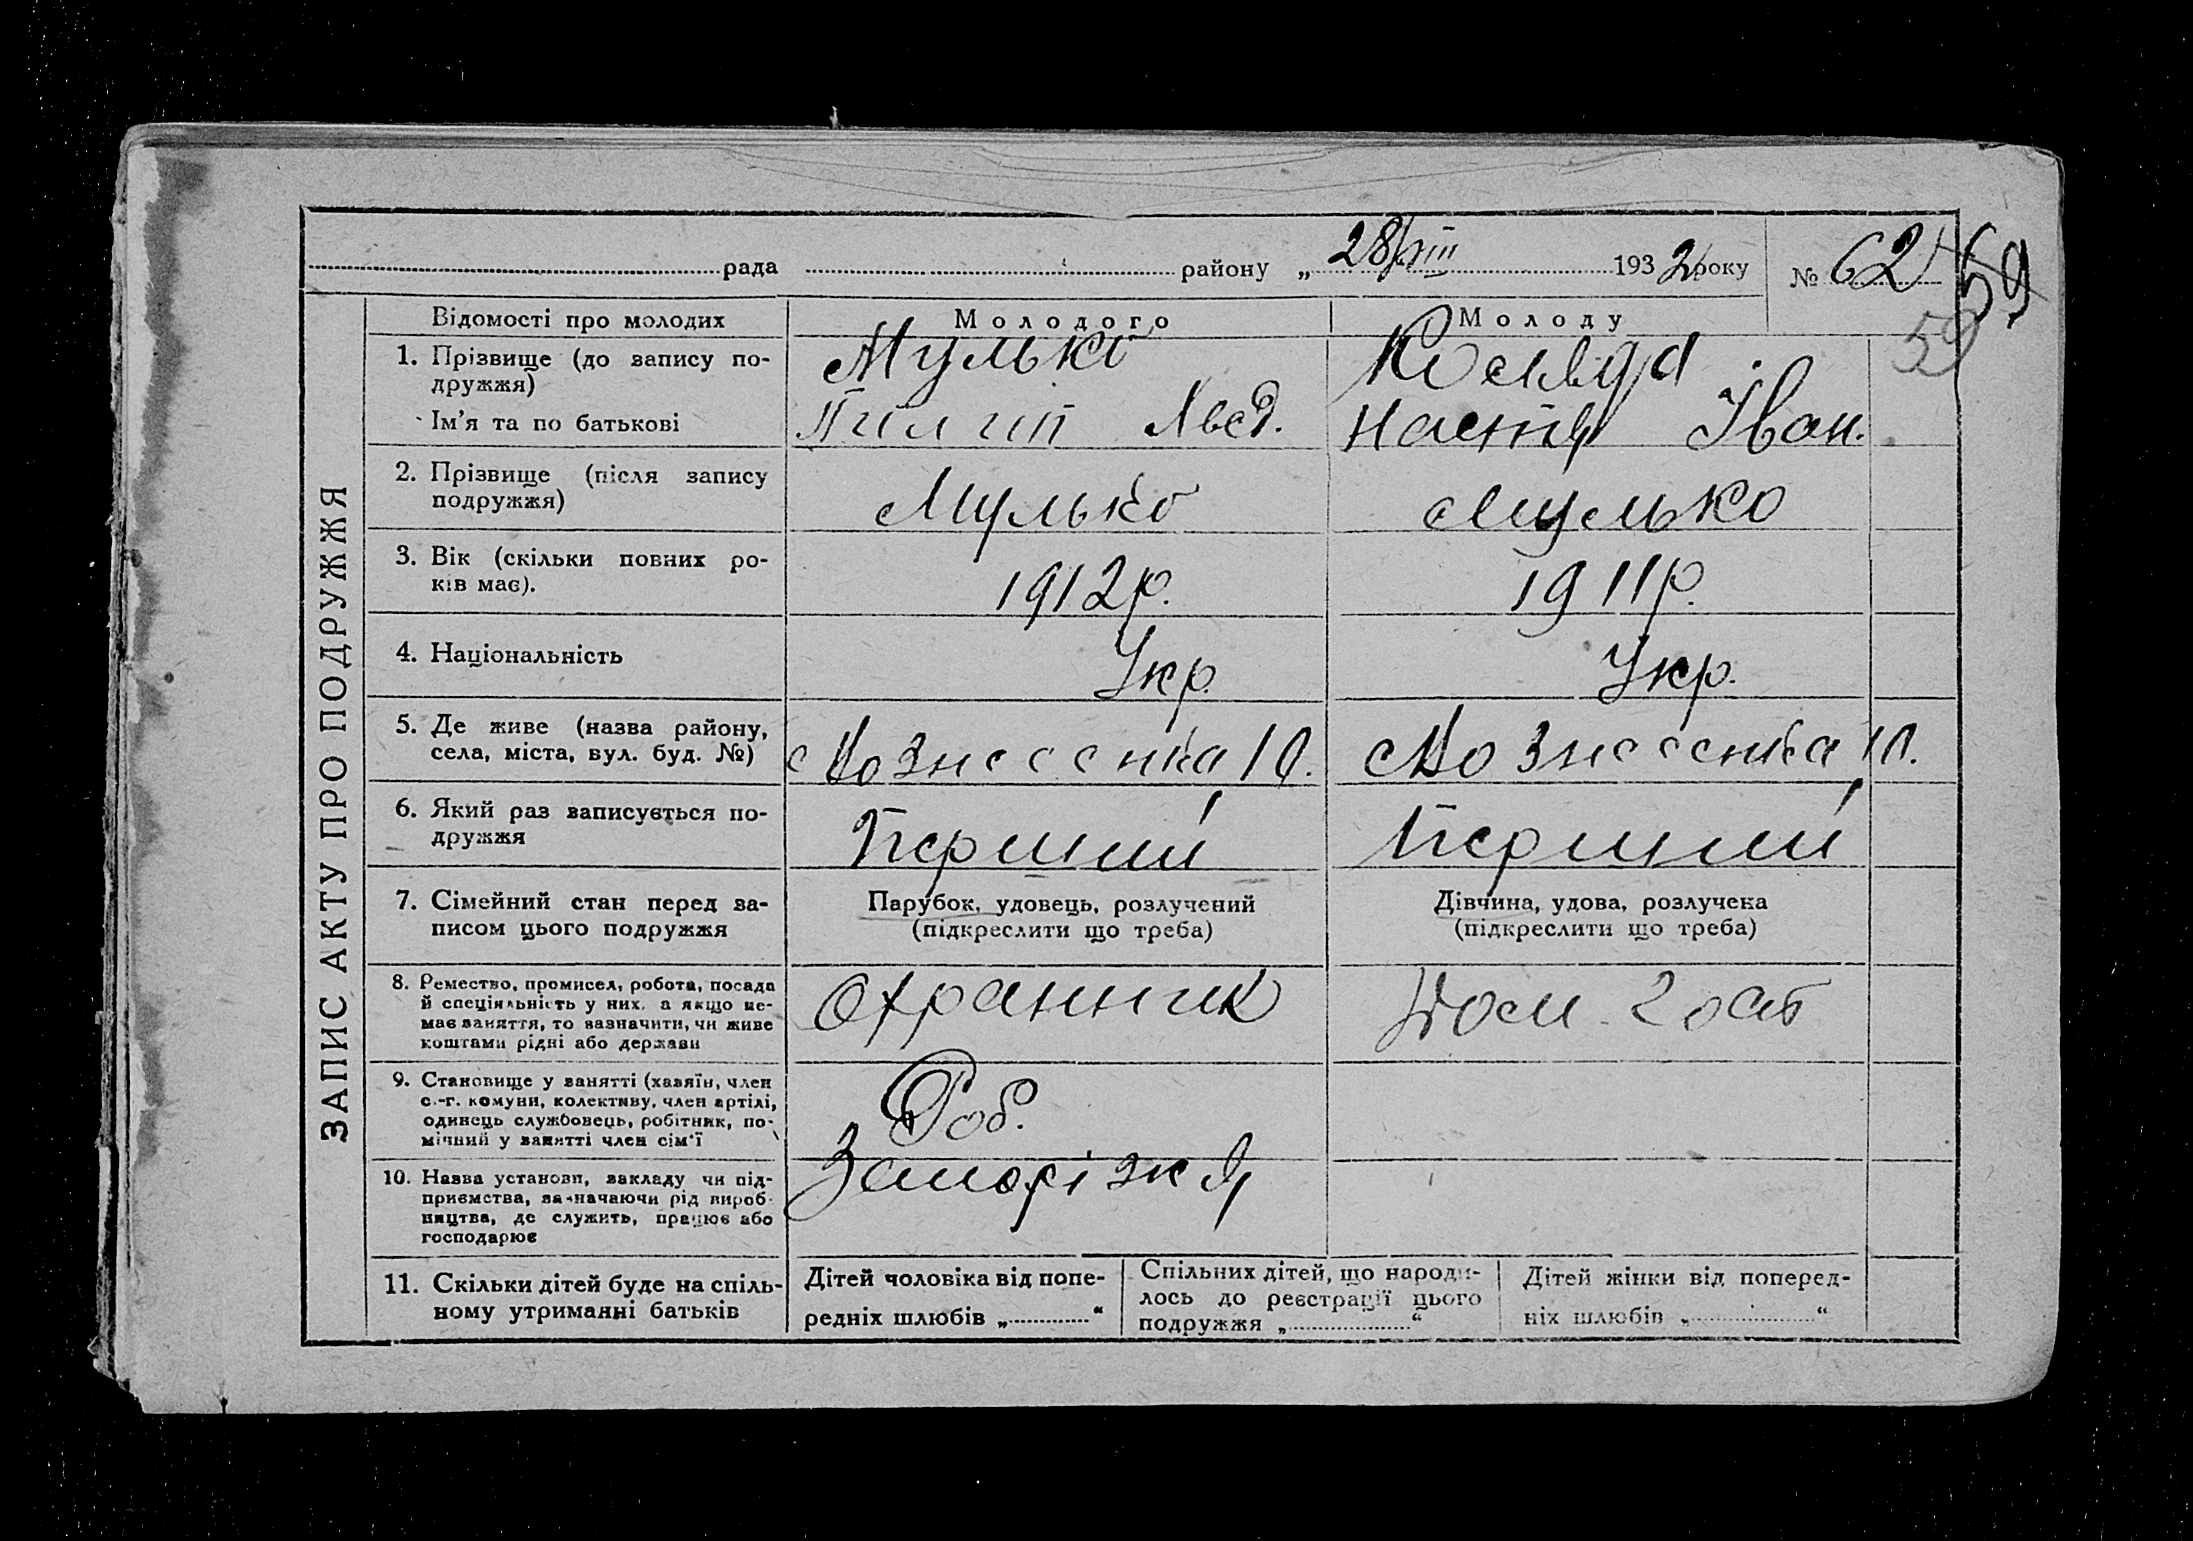 рада району „ 28/VIII 1932 року № 62 59
59
ЗАПИС АКТУ ПРО ПОДРУЖЖЯ
Відомості про молодих Молодого Молоду
1. Прізвище (до запису по-
дружжя) Мулько
Ім'я та по батькові Пилип Івані.
2. Прізвище (після запису
подружжя) Мулько Мулько
3. Вік (скільки повних ро-
ків має). 1912р. 1911р.
4. Національність Укр. Укр.
5. Де живе (назва району,
села, міста, вул. буд. №) Вознесенка Вознесенка
6. Який раз записується по-
дружжя Перший Перший
7. Сімейний стан перед за-
писом цього подружжя
Парубок, удовець, розлучений
(підкреслити що треба)
Дівчина, удова, розлучена
(підкреслити що треба)
8. Ремество, промисел, робота, посада
й спеціяльність у них, а якщо не-
має заняття, то зазначити, чи живе
коштами рідні або держави
Охранник Дом. госп
9. Становище у занятті (хазяїн, член
с.-г. комуни, колективу, член артілі,
одинець службовець, робітник, по-
мічний у занятті член сім'ї
Роб.
10. Назва установи, закладу чи під-
приємства, зазначаючи рід вироб-
ництва, де служить, працює або
господарює
11. Скільки дітей буде на спіль-
ному утриманні батьків
Дітей чоловіка від попе-
редніх шлюбів „ “
Спільних дітей, що народи-
лось до реєстрації цього
подружжя „ “
Дітей жінки від поперед-
ніх шлюбів „ “